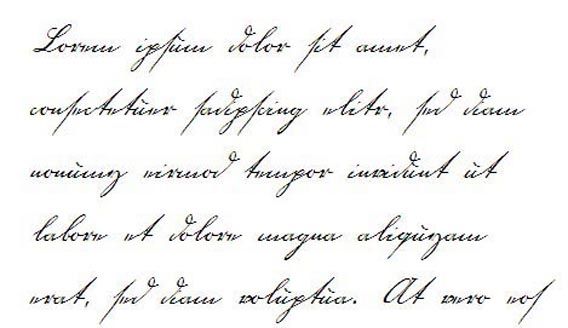 Lorem ipsum dolor sit amet,
consectetuer sadipscing elitr, sed diam
nonumy eirmod tempor invidunt ut
labore et dolore magna aliquyam
erat, sed diam voluptua. At vero eos